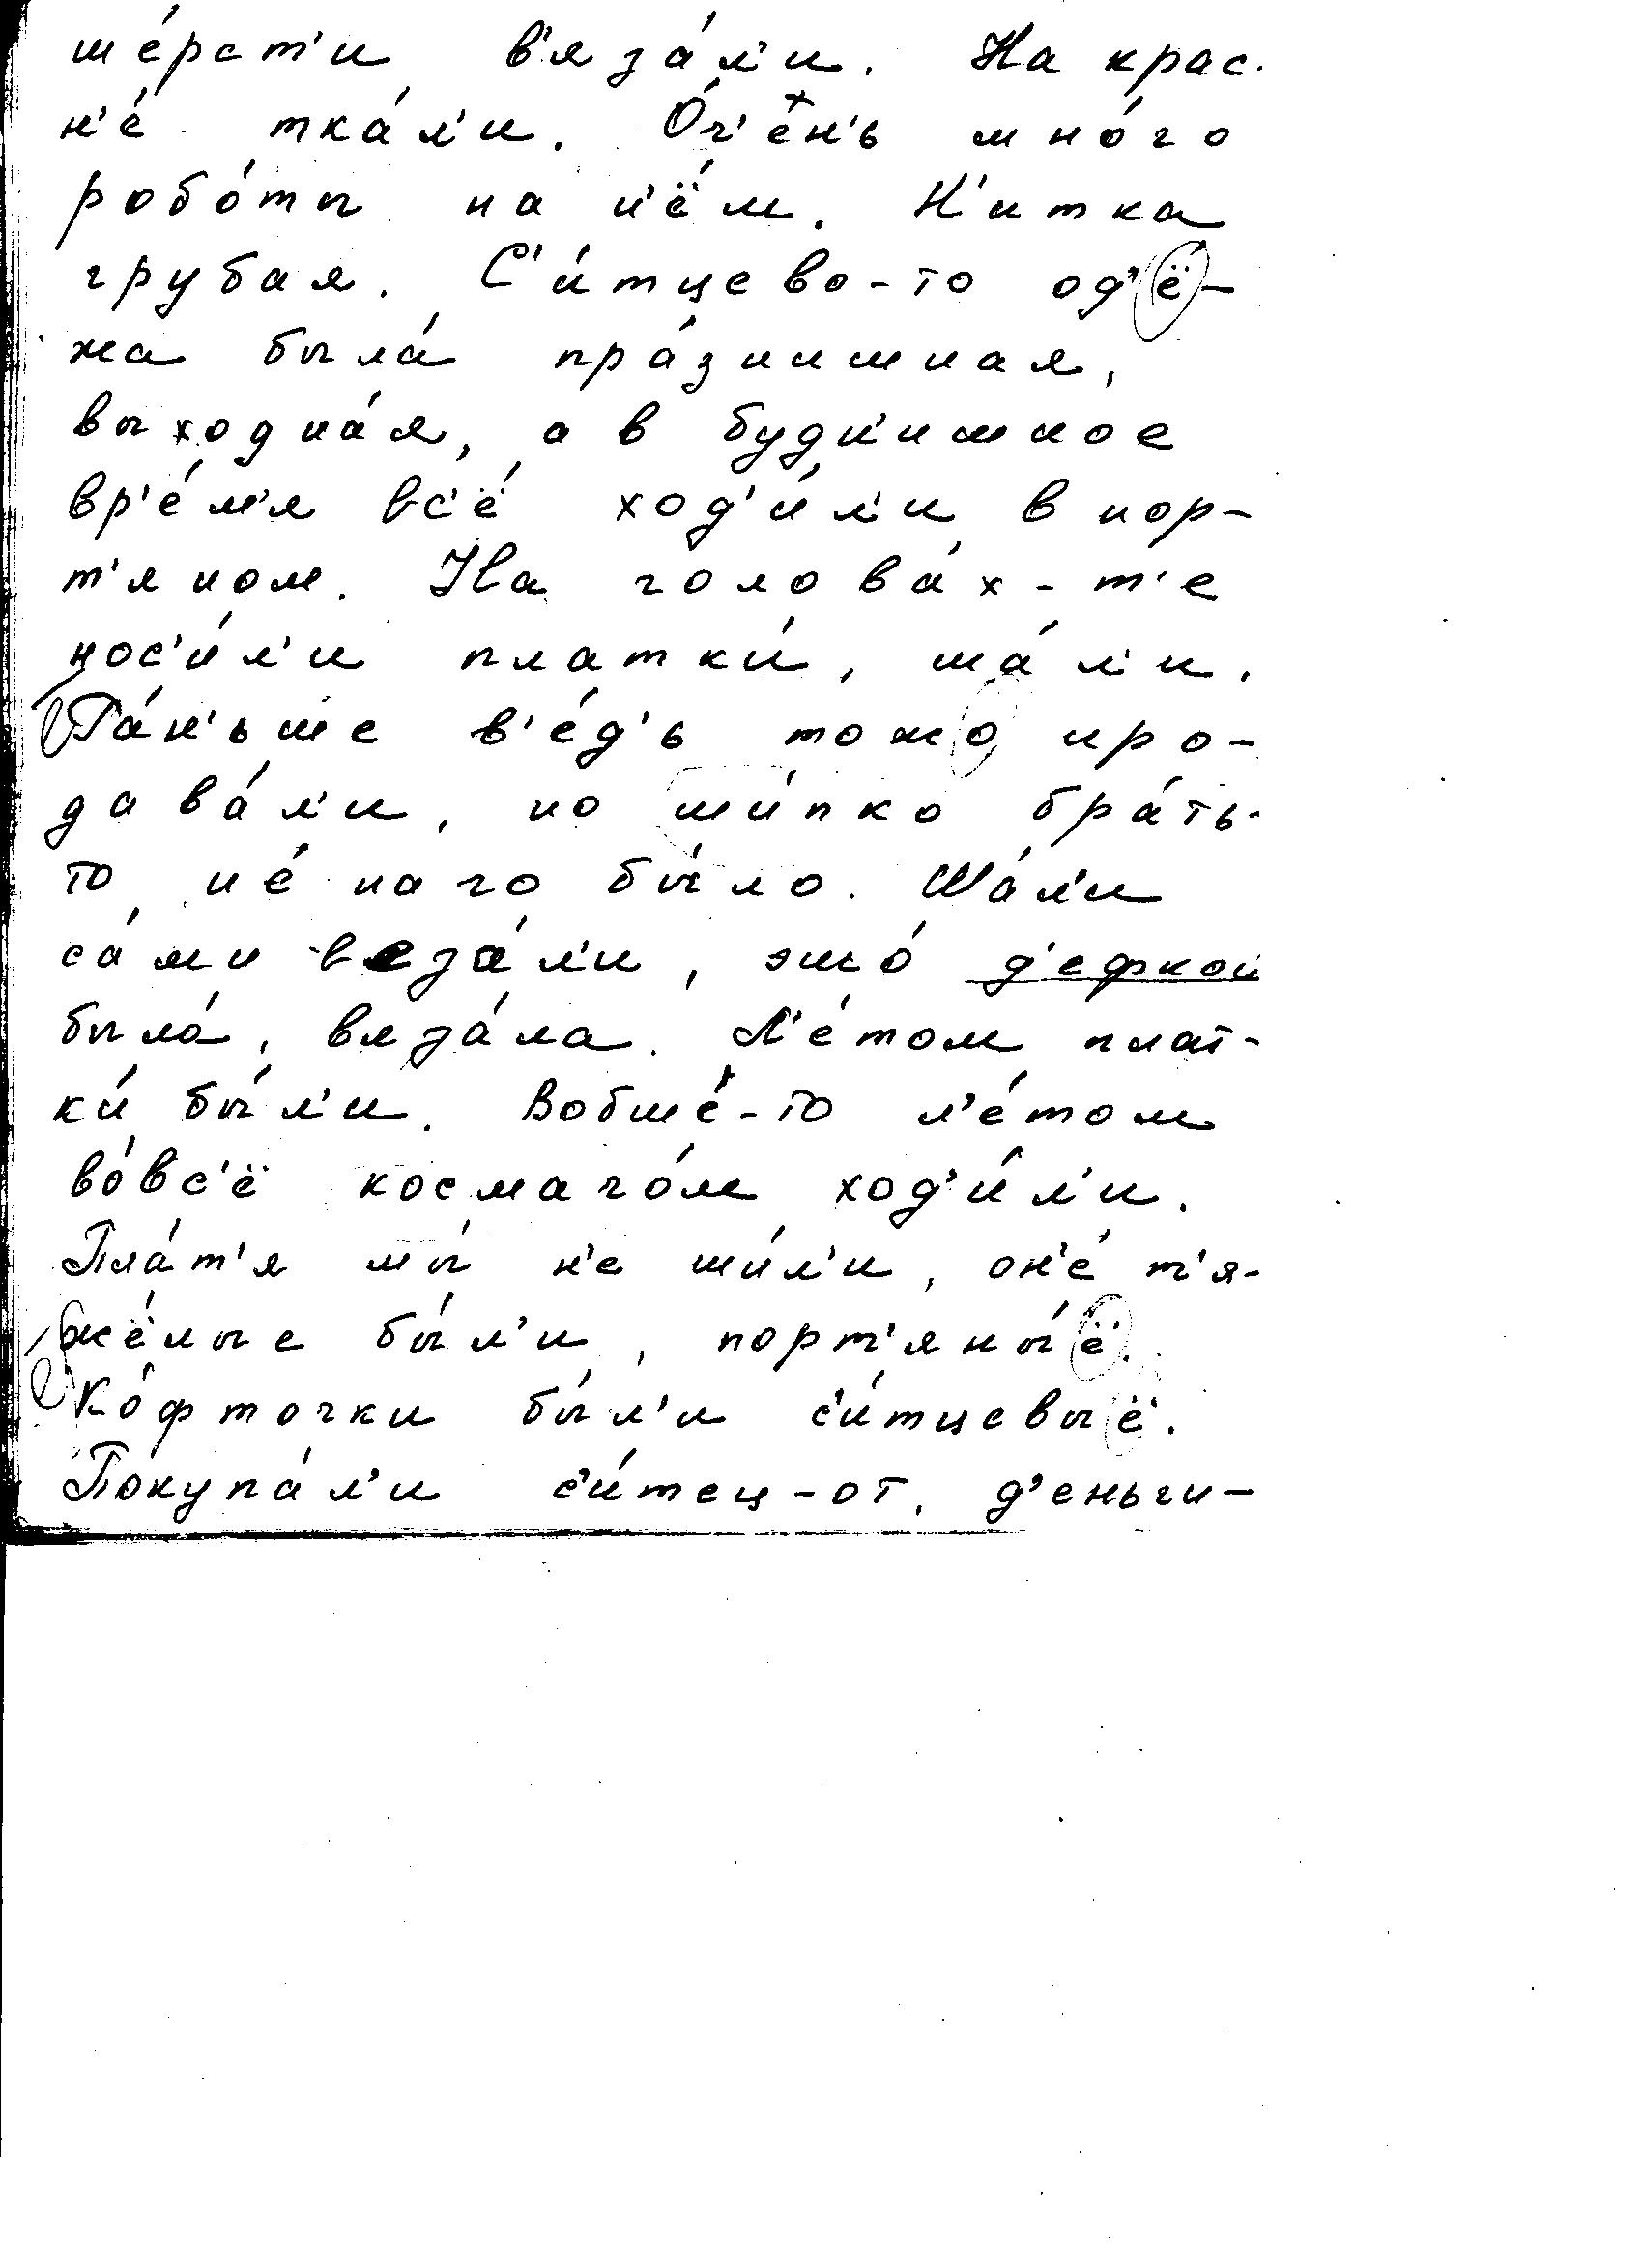 ше́рст'и в'яза́л'и. На крас-
н'е́ тка́л'и. О́ч'ен'ь мно́го
робо́ты на н'ём. Н'итка
грубая. С'и́тцево-то од'ё-
жа была́ пра́знишная,
выходна́я, а в будн'ишное
вр'е́м'я вс'ё ход'и́л'и в пор-
т'яном. На голова́х-т'е
нос'и́л'и платки́, ша́л'и.
Ра́н'ьше в'е́д'ь тожо про-
дава́л'и, но ши́пко бра́ть-
то не́начо бы́ло. Ша́л'и
са́ми веза́л'и, эшо́ д'ефкой
была́, вяза́ла. Л'е́том плат-
ки́ бы́л'и. Вобше́-то л'е́том
во́вс'ё космачо́м ход'и́л'и.
Пла́т'я мы́ н'е ши́л'и, он'е́ т'я-
жёлые бы́л'и, порт'яны́ё.
Ко́фточки бы́л'и с'и́тцевыё.
Покупа́л'и с'и́тец-от, д'еньги-